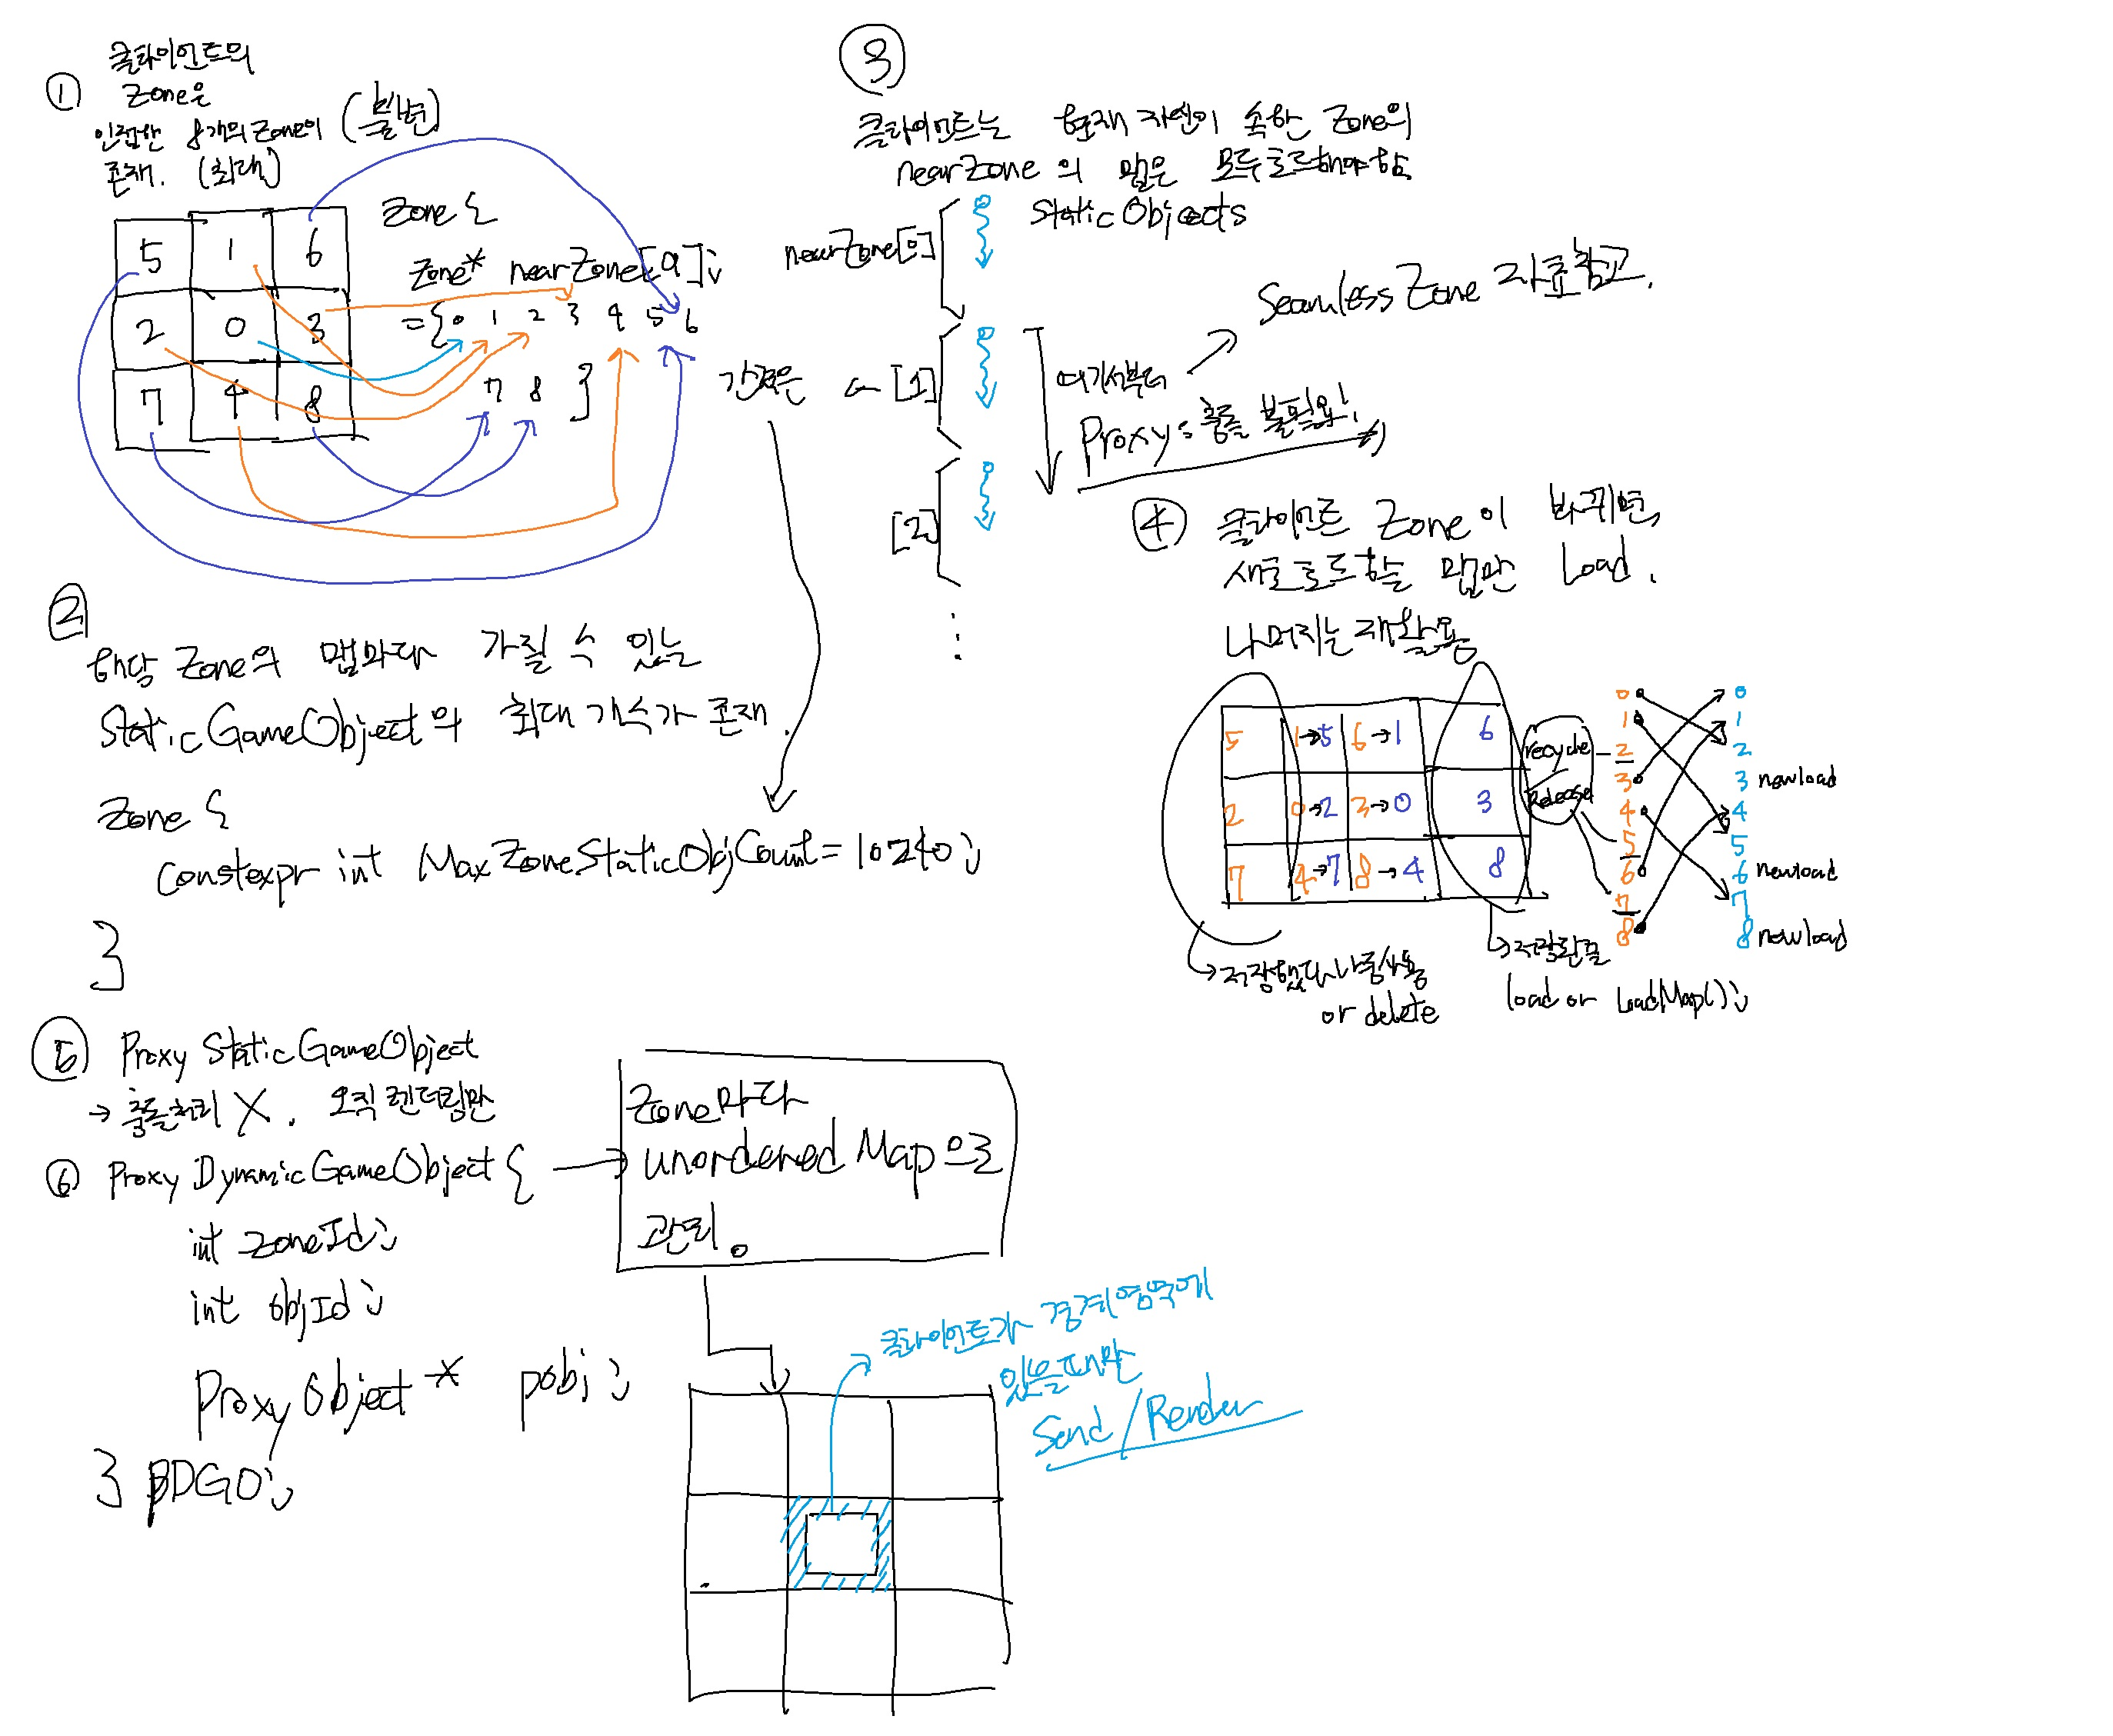 ①
클라이언트의
Zone은
인접한 8개의 Zone이 (불변)
존재. (최대)
5 1 6
2 0 3
7 4 8
Zone {
Zone* nearZone[9];
={0 1 2 3 4 5 6
7 8 }
②
해당 Zone의 맵마다 가질 수 있는
Static GameObject의 최대 개수가 존재.
Zone {
Constexpr int MaxZoneStaticObjCount = 10240;
}
③
클라이언트는 현재 자신이 속한 Zone의
nearZone의 맵은 모두 로드해야함
nearZone[0]
Static Objects
[1]
[2]
여기서부터
Seamless Zone 자료참고.
Proxy: 충돌 불필요!
④ 클라이언트 Zone이 바뀌면,
새로 로드할 맵만 Load.
나머지는 재활용
5 1→5 6→1 6
2 0→2 3→0 3
7 4→7 8→4 8
recycle
Release
0 0
1 1
2 2
3 3 newload
4 4
5 5
6 6 newload
7 7
8 8 newload
→저장했다 나중사용
or delete
load or LoadMap();
⑤ Proxy Static GameObject
→ 충돌처리 X. 오직 렌더링만
⑥ Proxy Dynamic GameObject {
int zoneId;
int objId;
Proxy Object* pobj;
} PDGO;
Zone마다
unordered Map으로
관리.
클라이언트가 경계영역에
있을때만
Send/Render